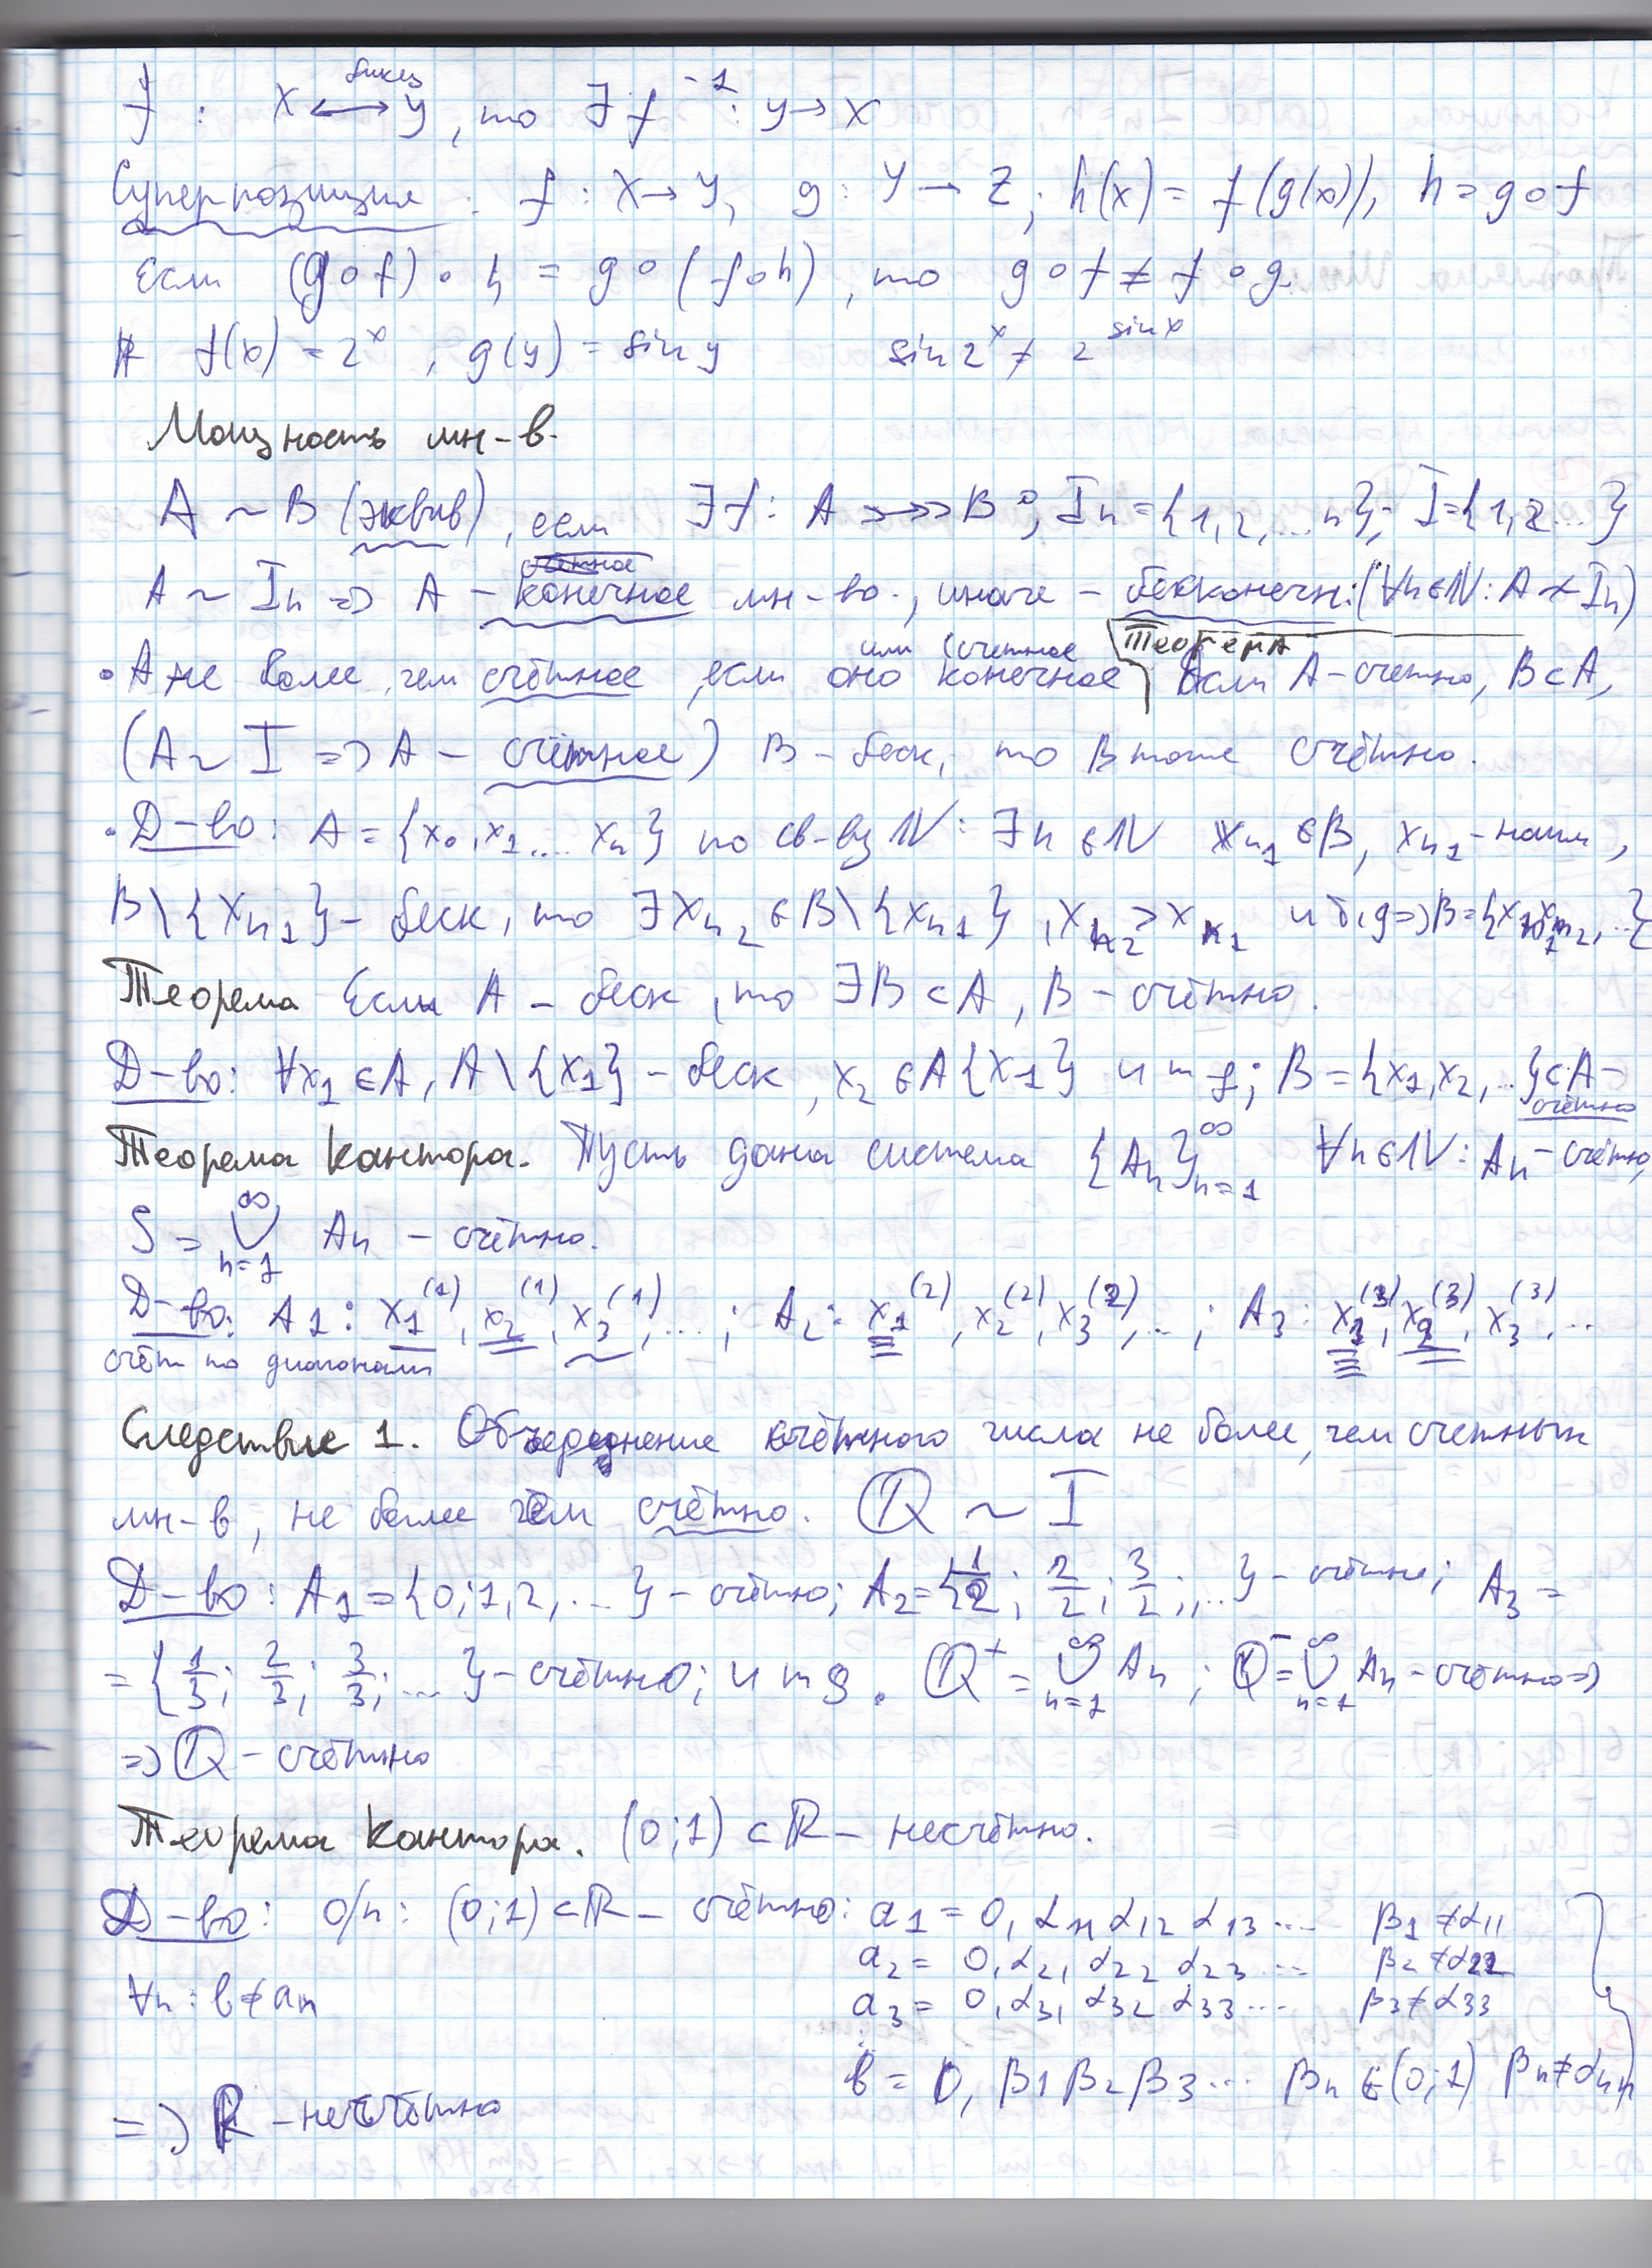 f : X ⟷ (биекц) Y, то ∃ f⁻¹ : Y → X
Суперпозиция : f : X → Y, g : Y → Z ; h(x) = f(g(x)), h = g∘f
Если (g∘f)∘h = g∘(f∘h), то g∘f ≠ f∘g
# f(x) = 2ˣ, g(y) = sin y   sin 2ˣ ≠ 2^(sin x)
Мощность мн-в.
A ~ B (эквив), если ∃ f : A ↠ B ; Iₙ = {1, 2, ... n}; I = {1, 2 ... }
A ~ Iₙ => A – конечное мн-во., иначе – бесконечн: (∀n∈ℕ: A ≁ Iₙ)
• A не более, чем счётное, если оно конечное или счетное | Теорема Если A – счетно, B ⊂ A,
(A ~ I => A – счётное) B – беск, то B тоже счётно.
• Д-во: A = {x₀, x₁ ... xₙ} по св-ву ℕ: ∃ n ∈ ℕ xₙ₁ ∈ B, xₙ₁ – наим,
B \ {xₙ₁} – беск, то ∃ xₙ₂ ∈ B \ {xₙ₁}, xₙ₂ > xₙ₁ и т.д => B = {xₙ₁, xₙ₂, ...}
Теорема Если A – беск, то ∃ B ⊂ A, B – счётно.
Д-во: ∀x₁ ∈ A, A \ {x₁} – беск, x₂ ∈ A {x₁} и т д; B = {x₁, x₂, ...} ⊂ A – счётно
Теорема Кантора. Пусть дана система {Aₙ}ₙ₌₁^∞ ∀n∈ℕ: Aₙ – счётно,
S = ∪ₙ₌₁^∞ Aₙ – счётно.
Д-во: A₁ : x₁⁽¹⁾, x₂⁽¹⁾, x₃⁽¹⁾, ... ; A₂ : x₁⁽²⁾, x₂⁽²⁾, x₃⁽²⁾, ... ; A₃ : x₁⁽³⁾, x₂⁽³⁾, x₃⁽³⁾, ...
счёт по диагонали
Следствие 1. Объединение счётного числа не более, чем счетных
мн-в, не более чем счётно. ℚ ~ I
Д-во: A₁ = {0; 1, 2, ... } – счётно; A₂ = {1/2; 2/2; 3/2; ...} – счётно; A₃ =
= {1/3; 2/3; 3/3; ... } – счётно; и т д. ℚ⁺ = ∪ₙ₌₁^∞ Aₙ ; ℚ⁻ = ∪ₙ₌₁^∞ Aₙ – счётно =>
=> ℚ – счётно
Теорема Кантора. (0; 1) ⊂ ℝ – несчётно.
Д-во: о/п: (0; 1) ⊂ ℝ – счётно: a₁ = 0, α₁₁ α₁₂ α₁₃ ... β₁ ≠ α₁₁
a₂ = 0, α₂₁ α₂₂ α₂₃ ... β₂ ≠ α₂₂
∀n : b ≠ aₙ   a₃ = 0, α₃₁ α₃₂ α₃₃ ... β₃ ≠ α₃₃
b = 0, β₁ β₂ β₃ ... βₙ ∈ (0; 1) βₙ ≠ αₙₙ
=> ℝ – несчётно